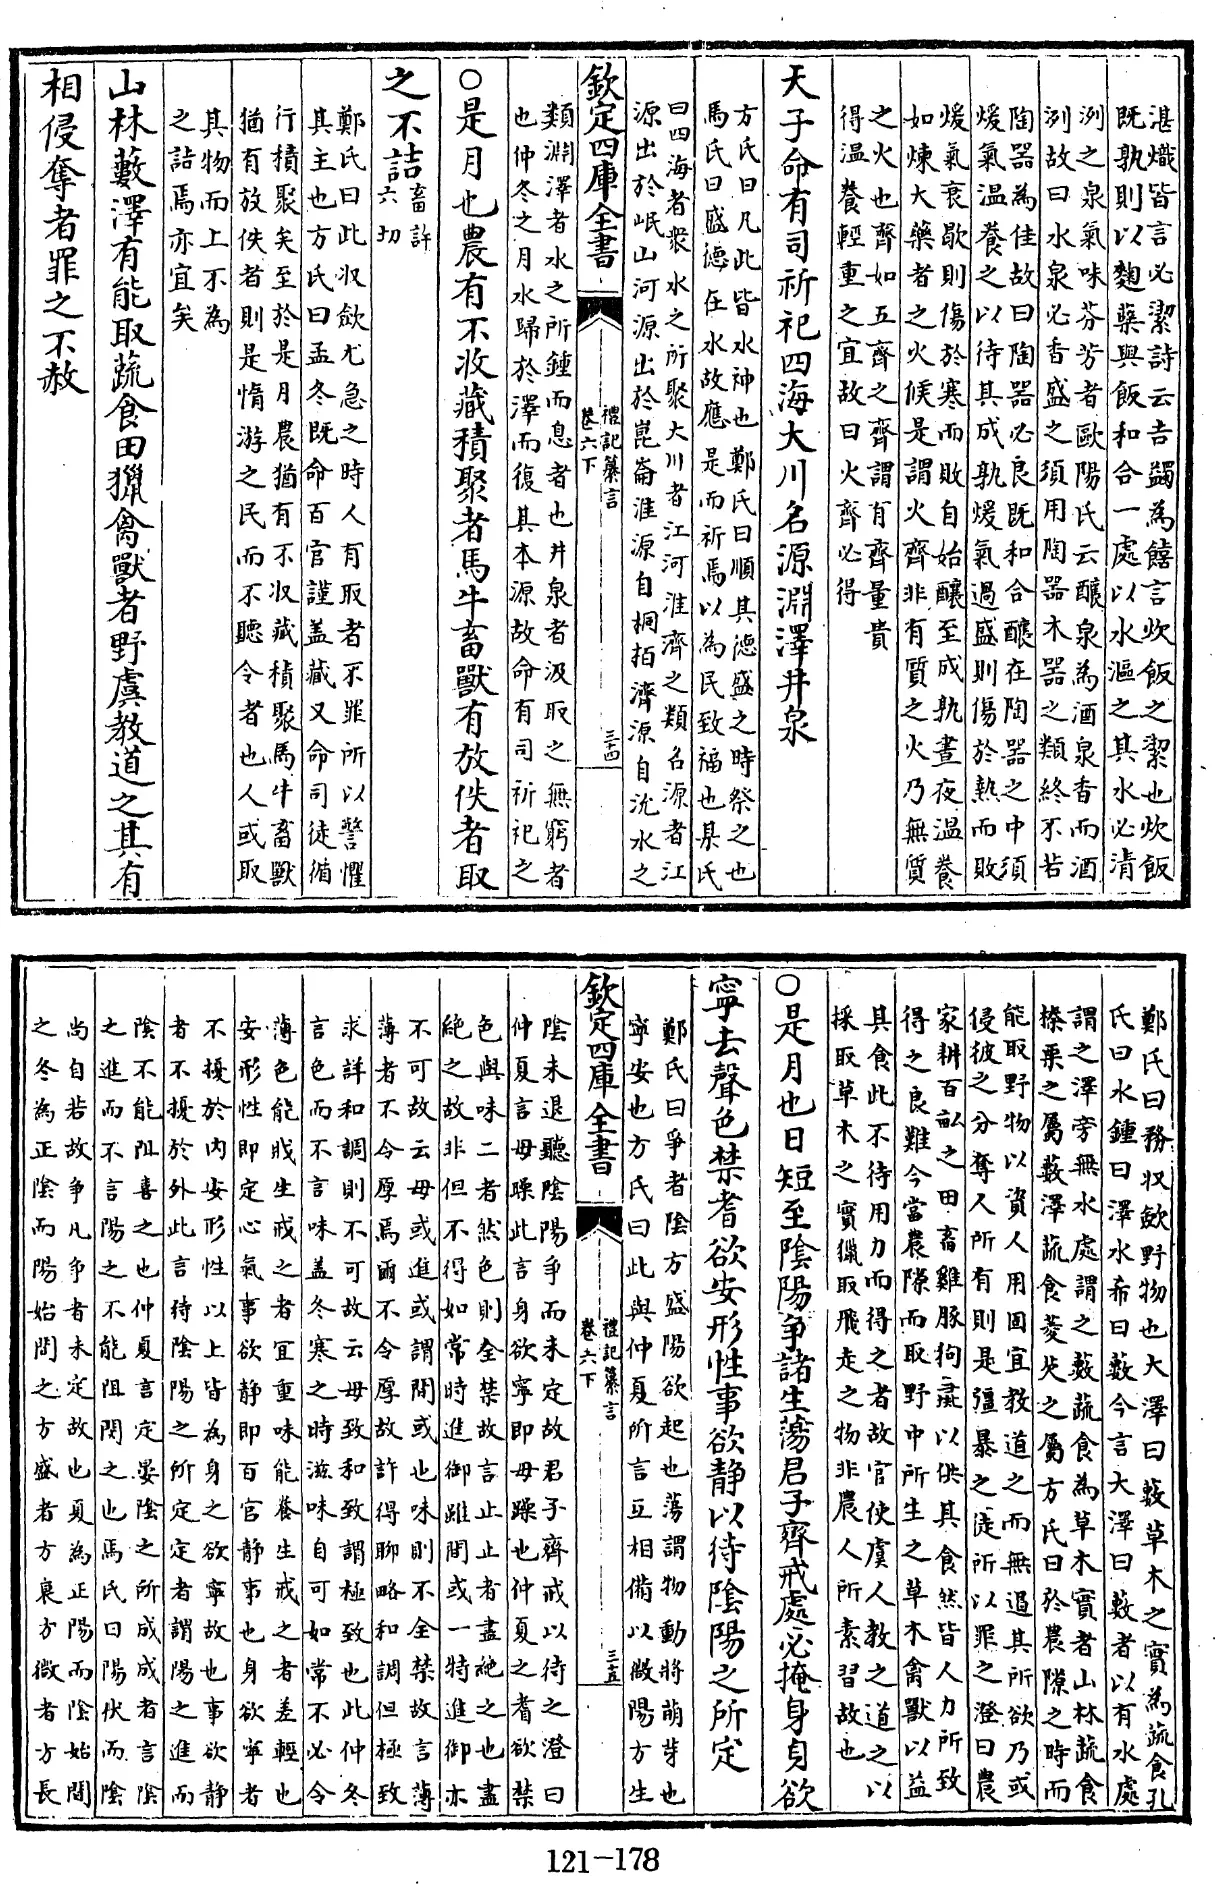 湛熾皆言必潔詩云吉蠲為饎言炊飯之潔也炊飯
既孰則以麴櫱與飯和合一處以水漚之其水必清
洌之泉氣味芬芳者歐陽氏云釀泉為酒泉香而酒
洌故曰水泉必香盛之須用陶器木器之類終不若
陶器為佳故曰陶器必良既和合釀在陶器之中須
煖氣溫養之以待其成孰煖氣過盛則傷於熱而敗
煖氣衰歇則傷於寒而敗自始釀至成孰晝夜溫養
如煉大藥者之火候是謂火齊非有質之火乃無質
之火也齊如五齊之齊謂有齊量貴
得溫養輕重之宜故曰火齊必得
天子命有司祈祀四海大川名源淵澤井泉
方氏曰凡此皆水神也鄭氏曰順其德盛之時祭之也
馬氏曰盛德在水故應是而祈焉以為民致福也杲氏
曰四海者衆水之所聚大川者江河淮濟之類名源者江
源出於岷山河源出於崑崙淮源自桐栢濟源自沇水之
欽定四庫全書
禮記纂言
卷六下
三十四
類淵澤者水之所鍾而息者也井泉者汲取之無窮者
也仲冬之月水歸於澤而復其本源故命有司祈祀之
○是月也農有不收藏積聚者馬牛畜獸有放佚者取
之不詰畜許
六切
鄭氏曰此收斂尤急之時人有取者不罪所以警懼
其主也方氏曰孟冬既命百官謹蓋藏又命司徒循
行積聚矣至於是月農猶有不收藏積聚馬牛畜獸
猶有放佚者則是惰游之民而不聽令者也人或取
其物而上不為
之詰焉亦宜矣
山林藪澤有能取蔬食田獵禽獸者野虞教道之其有
相侵奪者罪之不赦
鄭氏曰務收斂野物也大澤曰藪草木之實為蔬食孔
氏曰水鍾曰澤水希曰藪今言大澤曰藪者以有水處
謂之澤旁無水處謂之藪蔬食為草木實者山林蔬食
榛栗之屬藪澤蔬食菱芡之屬方氏曰於農隙之時而
能取野物以資人用固宜教道之而無過其所欲乃或
侵彼之分奪人所有則是彊暴之徒所以罪之澄曰農
家耕百畝之田畜雞豚狗彘以供其食然皆人力所致
得之良難今當農隙而取野中所生之草木禽獸以益
其食此不待用力而得之者故官使虞人教之道之以
採取草木之實獵取飛走之物非農人所素習故也
○是月也日短至陰陽爭諸生蕩君子齊戒處必掩身身欲
寧去聲色禁耆欲安形性事欲靜以待陰陽之所定
鄭氏曰爭者陰方盛陽欲起也蕩謂物動將萌芽也
寧安也方氏曰此與仲夏所言互相備以微陽方生
欽定四庫全書
禮記纂言
卷六下
三十五
陰未退聽陰陽爭而未定故君子齊戒以待之澄曰
仲夏言毋躁此言身欲寧即毋躁也仲夏之耆欲禁
色與味二者然色則全禁故言止止者盡絶之也盡
絶之故非但不得如常時進御雖間或一特進御亦
不可故云毋或進或謂間或也味則不全禁故言薄
薄者不令厚焉爾不令厚故許得聊略和調但極致
求詳和調則不可故云毋致和致謂極致也此仲冬
言色而不言味蓋冬寒之時滋味自可如常不必令
薄色能戕生戒之者宜重味能養生戒之者差輕也
安形性即定心氣事欲静即百官静事也身欲寧者
不擾於内安形性以上皆為身之欲寧故也事欲静
者不擾於外此言待陰陽之所定定者謂陽之進而
陰不能阻喜之也仲夏言定晏陰之所成成者言陰
之進而不言陽之不能阻閔之也馬氏曰陽伏而陰
尚自若故爭凡爭者未定故也夏為正陽而陰始間
之冬為正陰而陽始間之方盛者方衰方微者方長
121-178